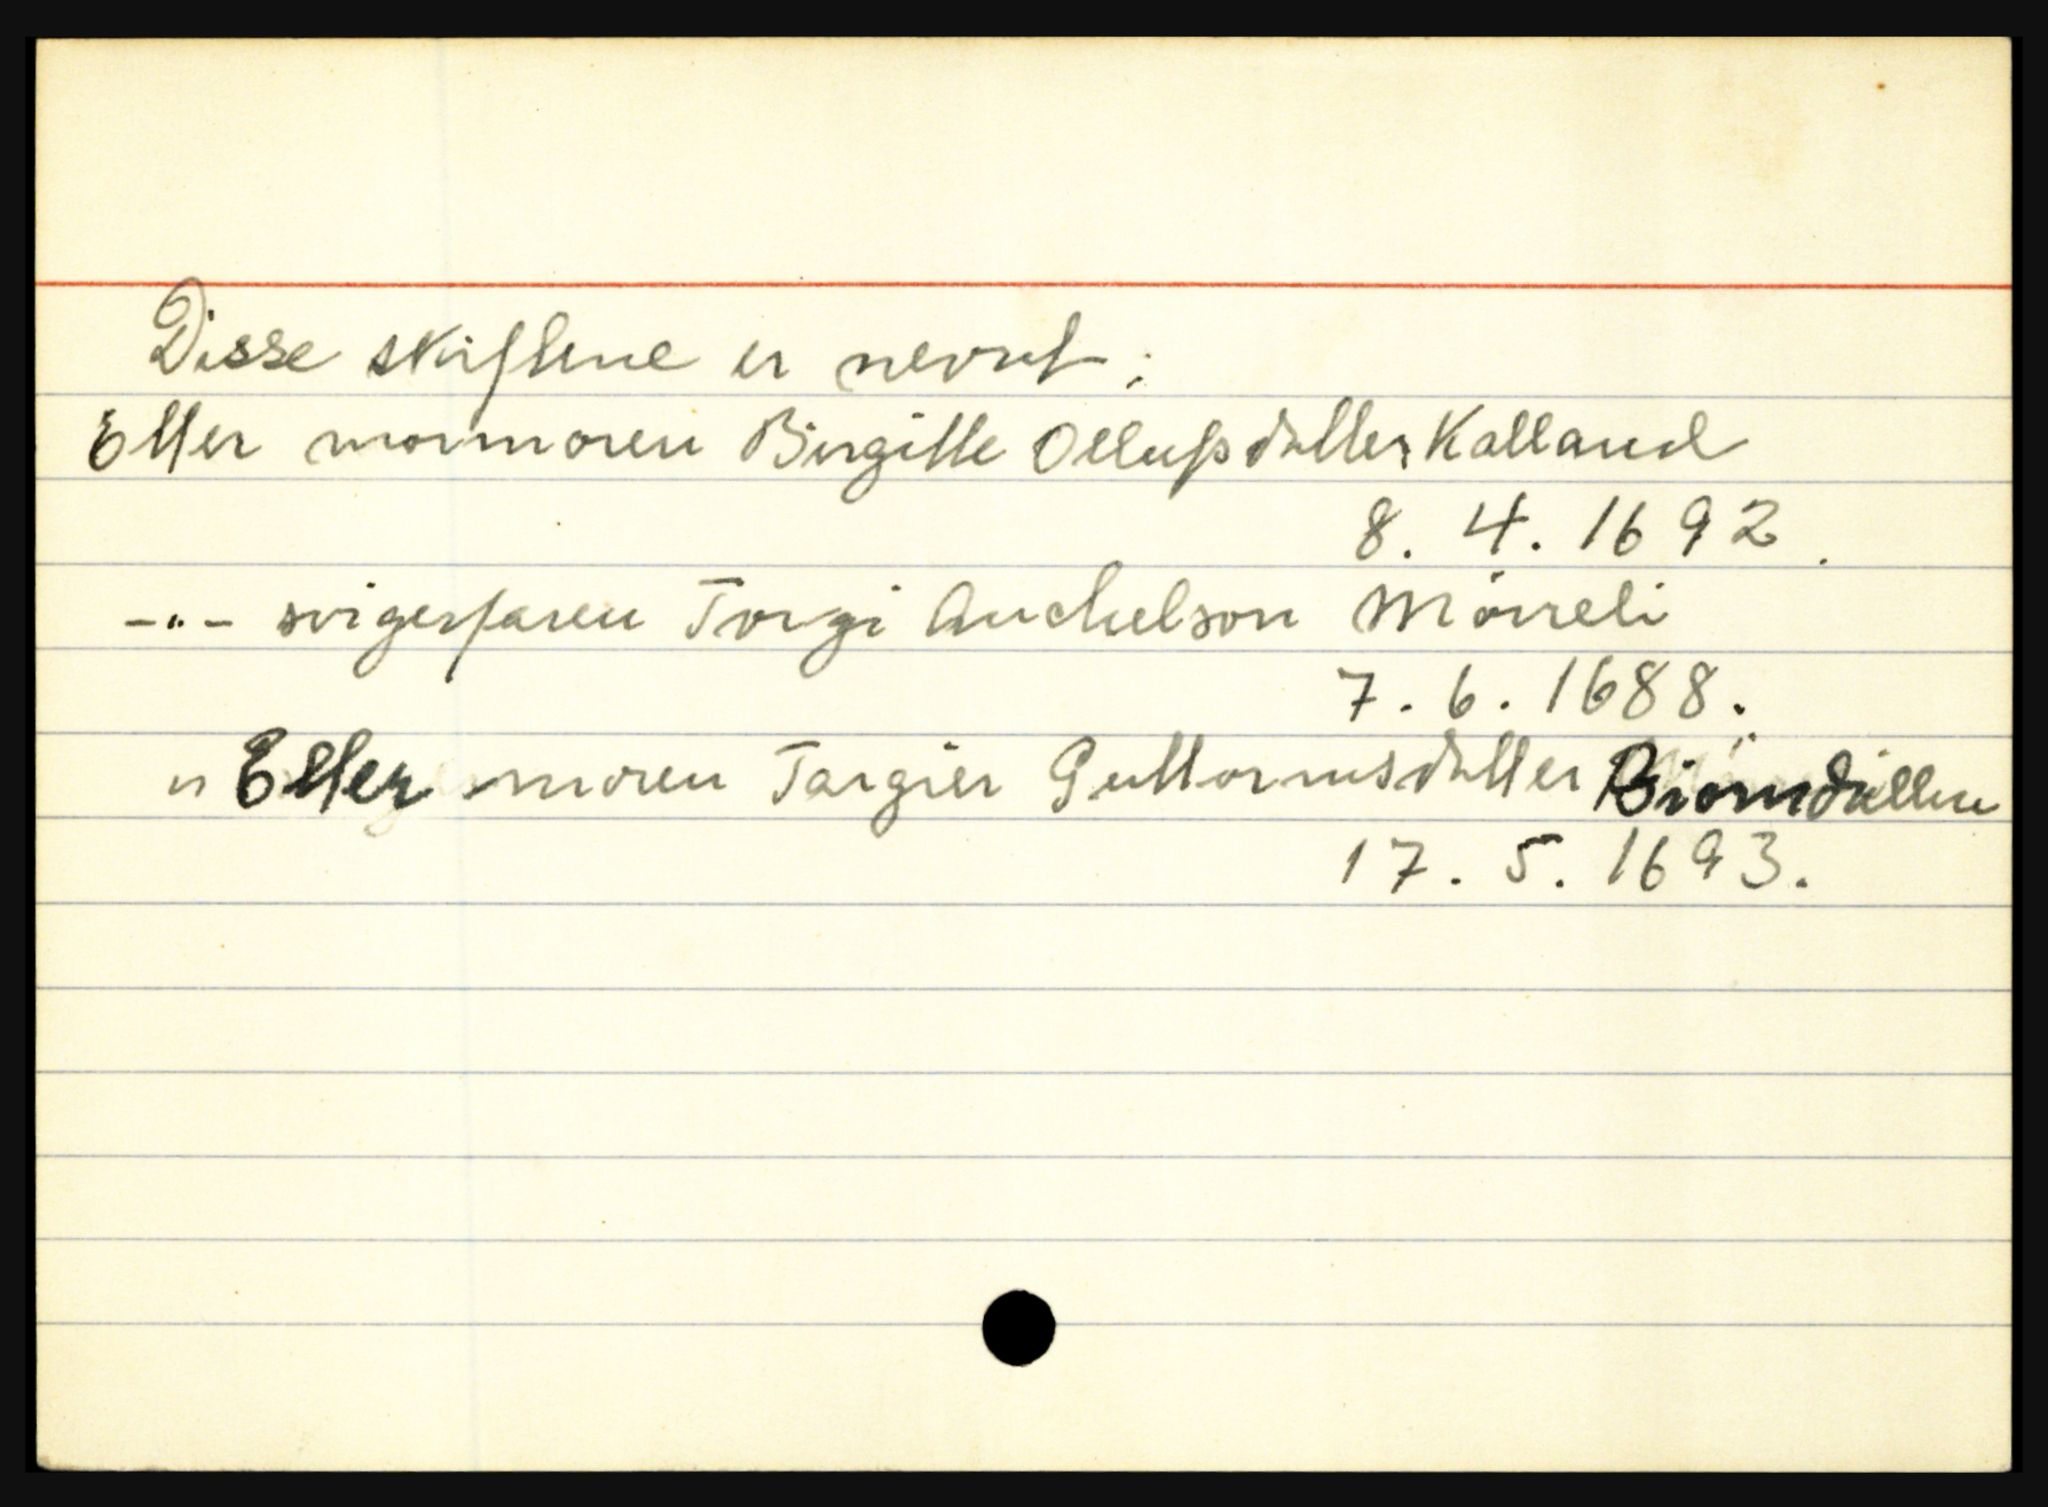 Disse skiftene er nevnt:
Etter mormoren Birgitte Ollufsdatter Kalland
8. 4. 1692.
-"- svigerfaren Torgi Anchelson Mörreli
7. 6. 1688.
" Etter moren Targier Guttormsdatter Biömdallen
17. 5. 1693.